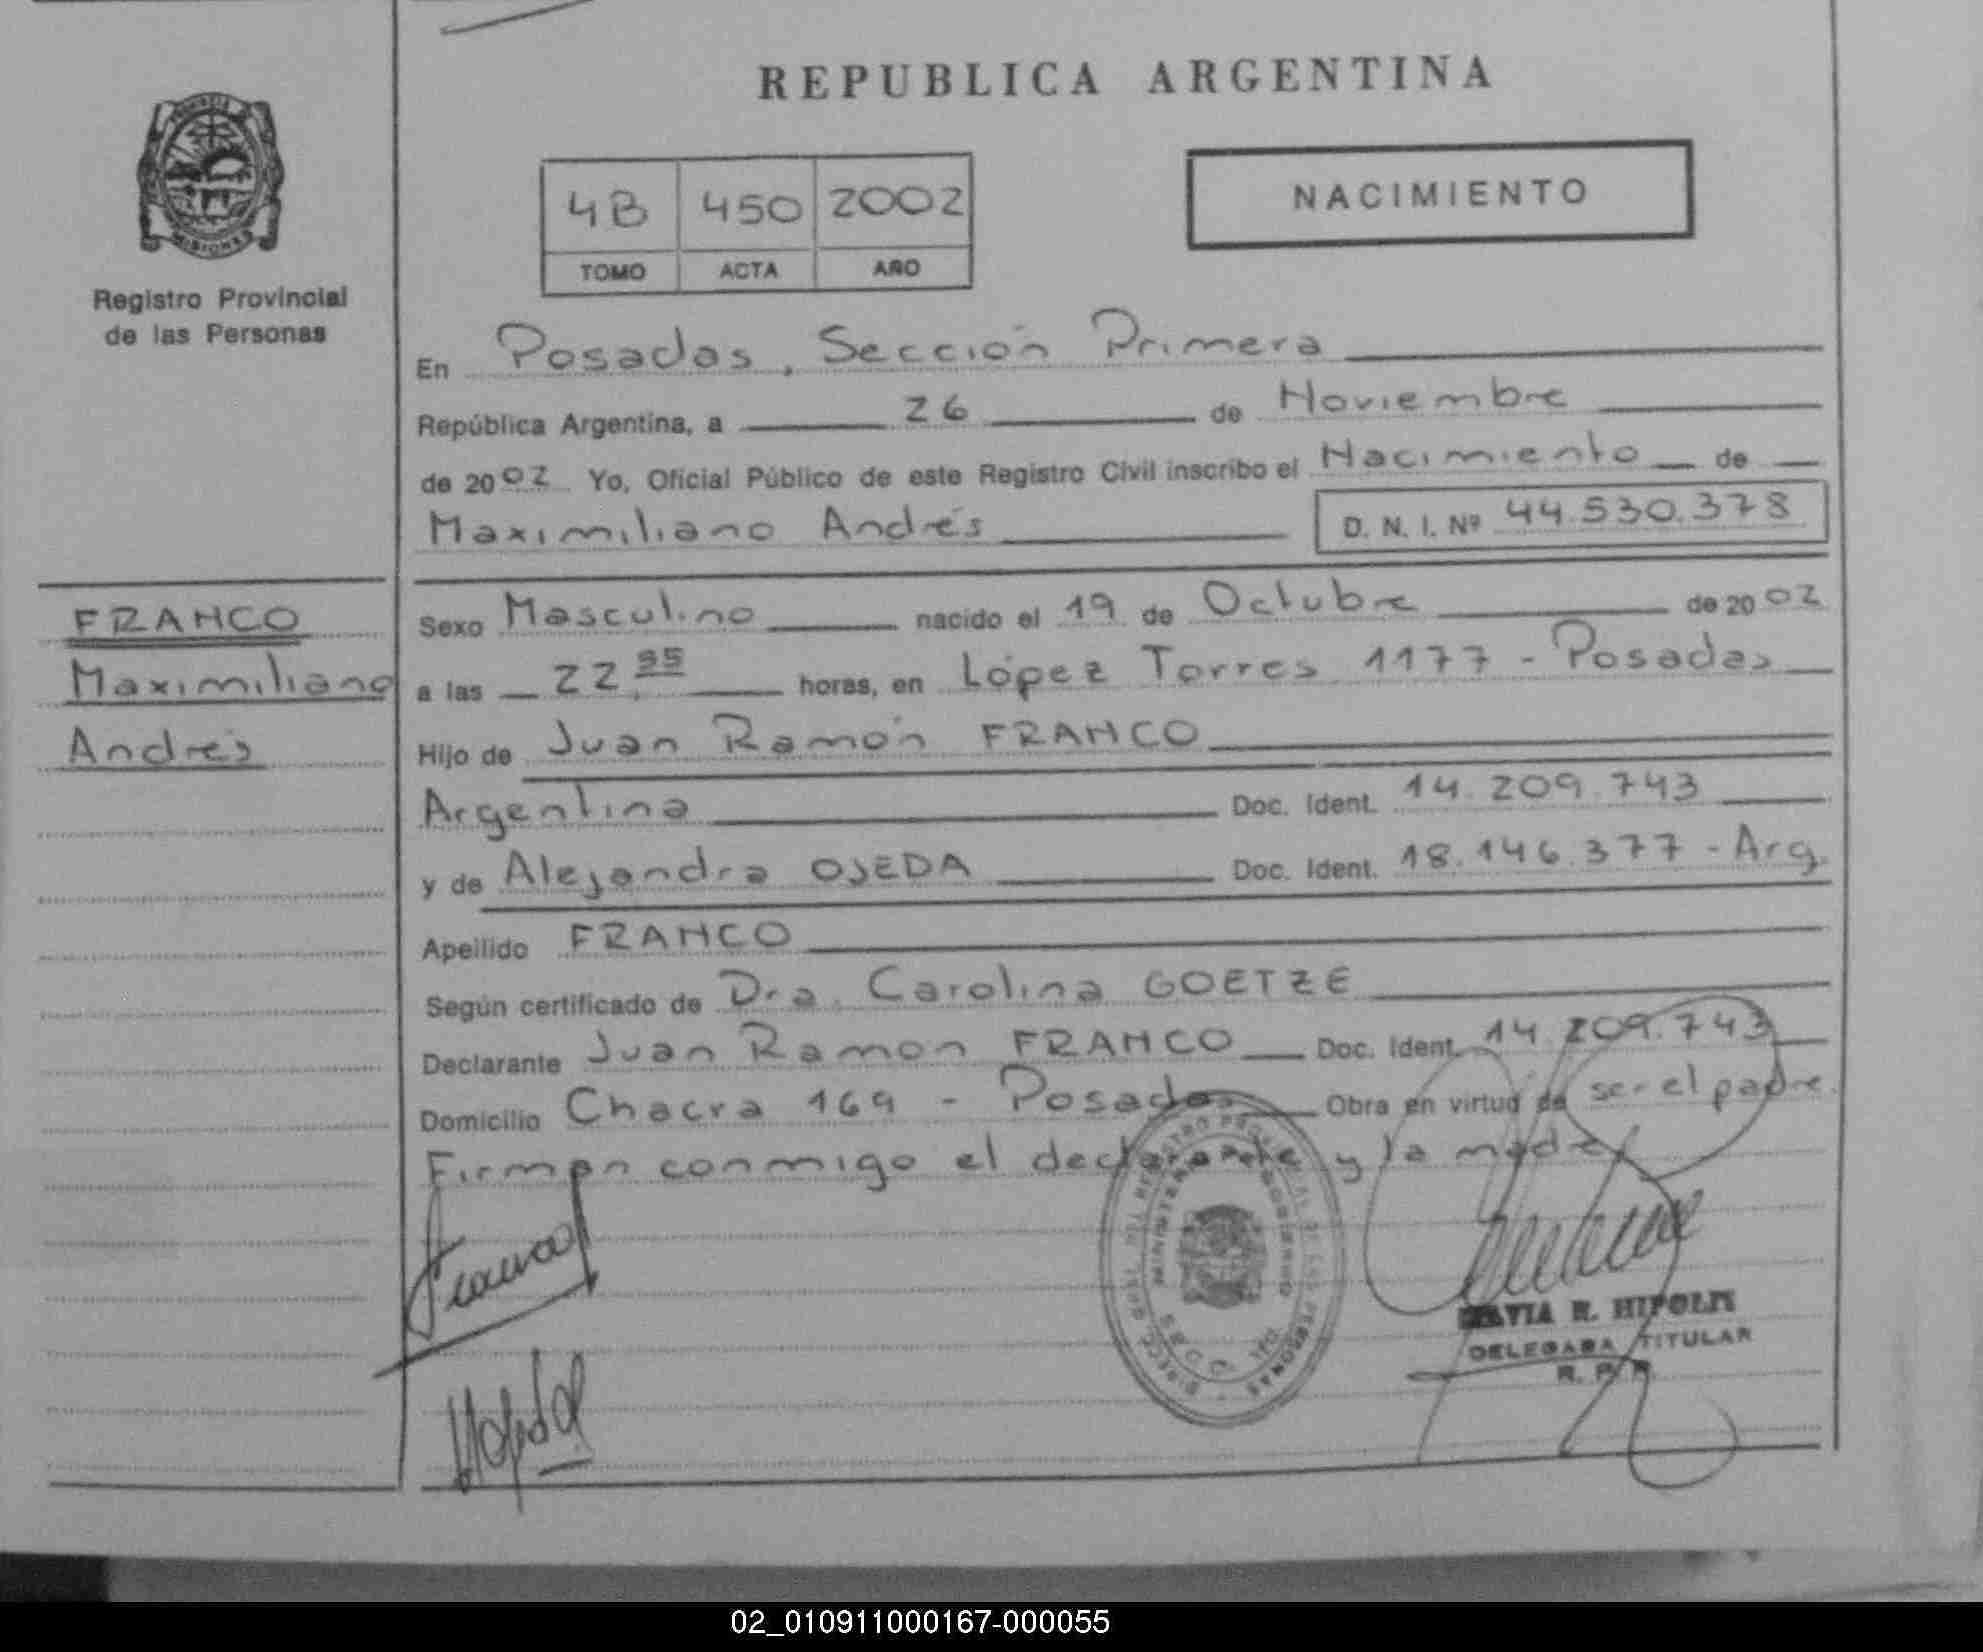 REPUBLICA ARGENTINA
MISIONES
Registro Provincial
de las Personas
4B 450 2002
TOMO ACTA AÑO
NACIMIENTO
En Posadas, Sección Primera
República Argentina, a 26 de Noviembre
de 2002 Yo, Oficial Público de este Registro Civil inscribo el Nacimiento de
Maximiliano Andrés D. N. I. Nº 44.530.378
FRANCO
Maximiliano
Andrés
Sexo Masculino nacido el 19 de Octubre de 2002
a las 22 horas, en López Torres 1177 - Posadas
Hijo de Juan Ramón FRANCO
Argentina Doc. Ident. 14.209.743
y de Alejandra OJEDA Doc. Ident. 18.146.377 - Arg.
Apellido FRANCO
Según certificado de Dra. Carolina GOETZE
Declarante Juan Ramon FRANCO Doc. Ident. 14.209.743
Domicilio Chacra 169 - Posadas Obra en virtud de ser el padre.
Firman conmigo el declarante y la madre
MINISTERIO DE GOBIERNO
R. HIPOLITI
DELEGADA TITULAR
R. P. P.
02_010911000167-000055